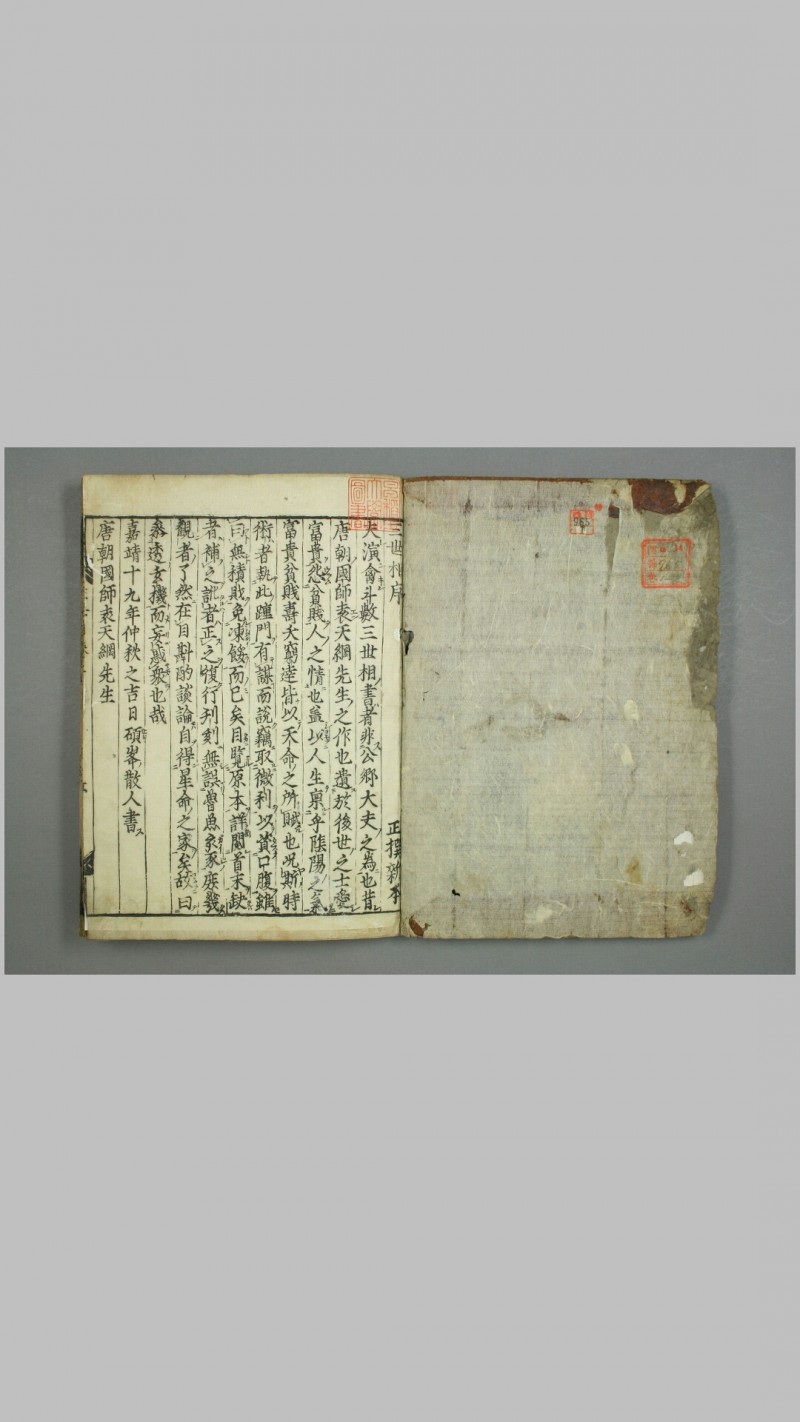 三世相序
正撰新本
夫演會斗數三世相書者非公卿大夫之為也昔
唐朝國師袁天綱先生之作也遺於後世之士愛
富貴怨貧賤人之情也蓋以人生稟乎陰陽之氣
富貴貧賤壽夭窮達皆以天命之所賦也况斯時
術者執此踵門有謀而說竊取微利以資口腹雖
曰無積敗免凍餒而已矣目覽原本詳閱首末缺
者補之訛者正之復行刋刻無誤魯魚亥豕庶幾
觀者了然在目斟酌談論自得星命之家矣故曰
叅透玄機而妄惑衆也哉
嘉靖十九年仲秋之吉日碩峯散人書
唐朝國師袁天綱先生